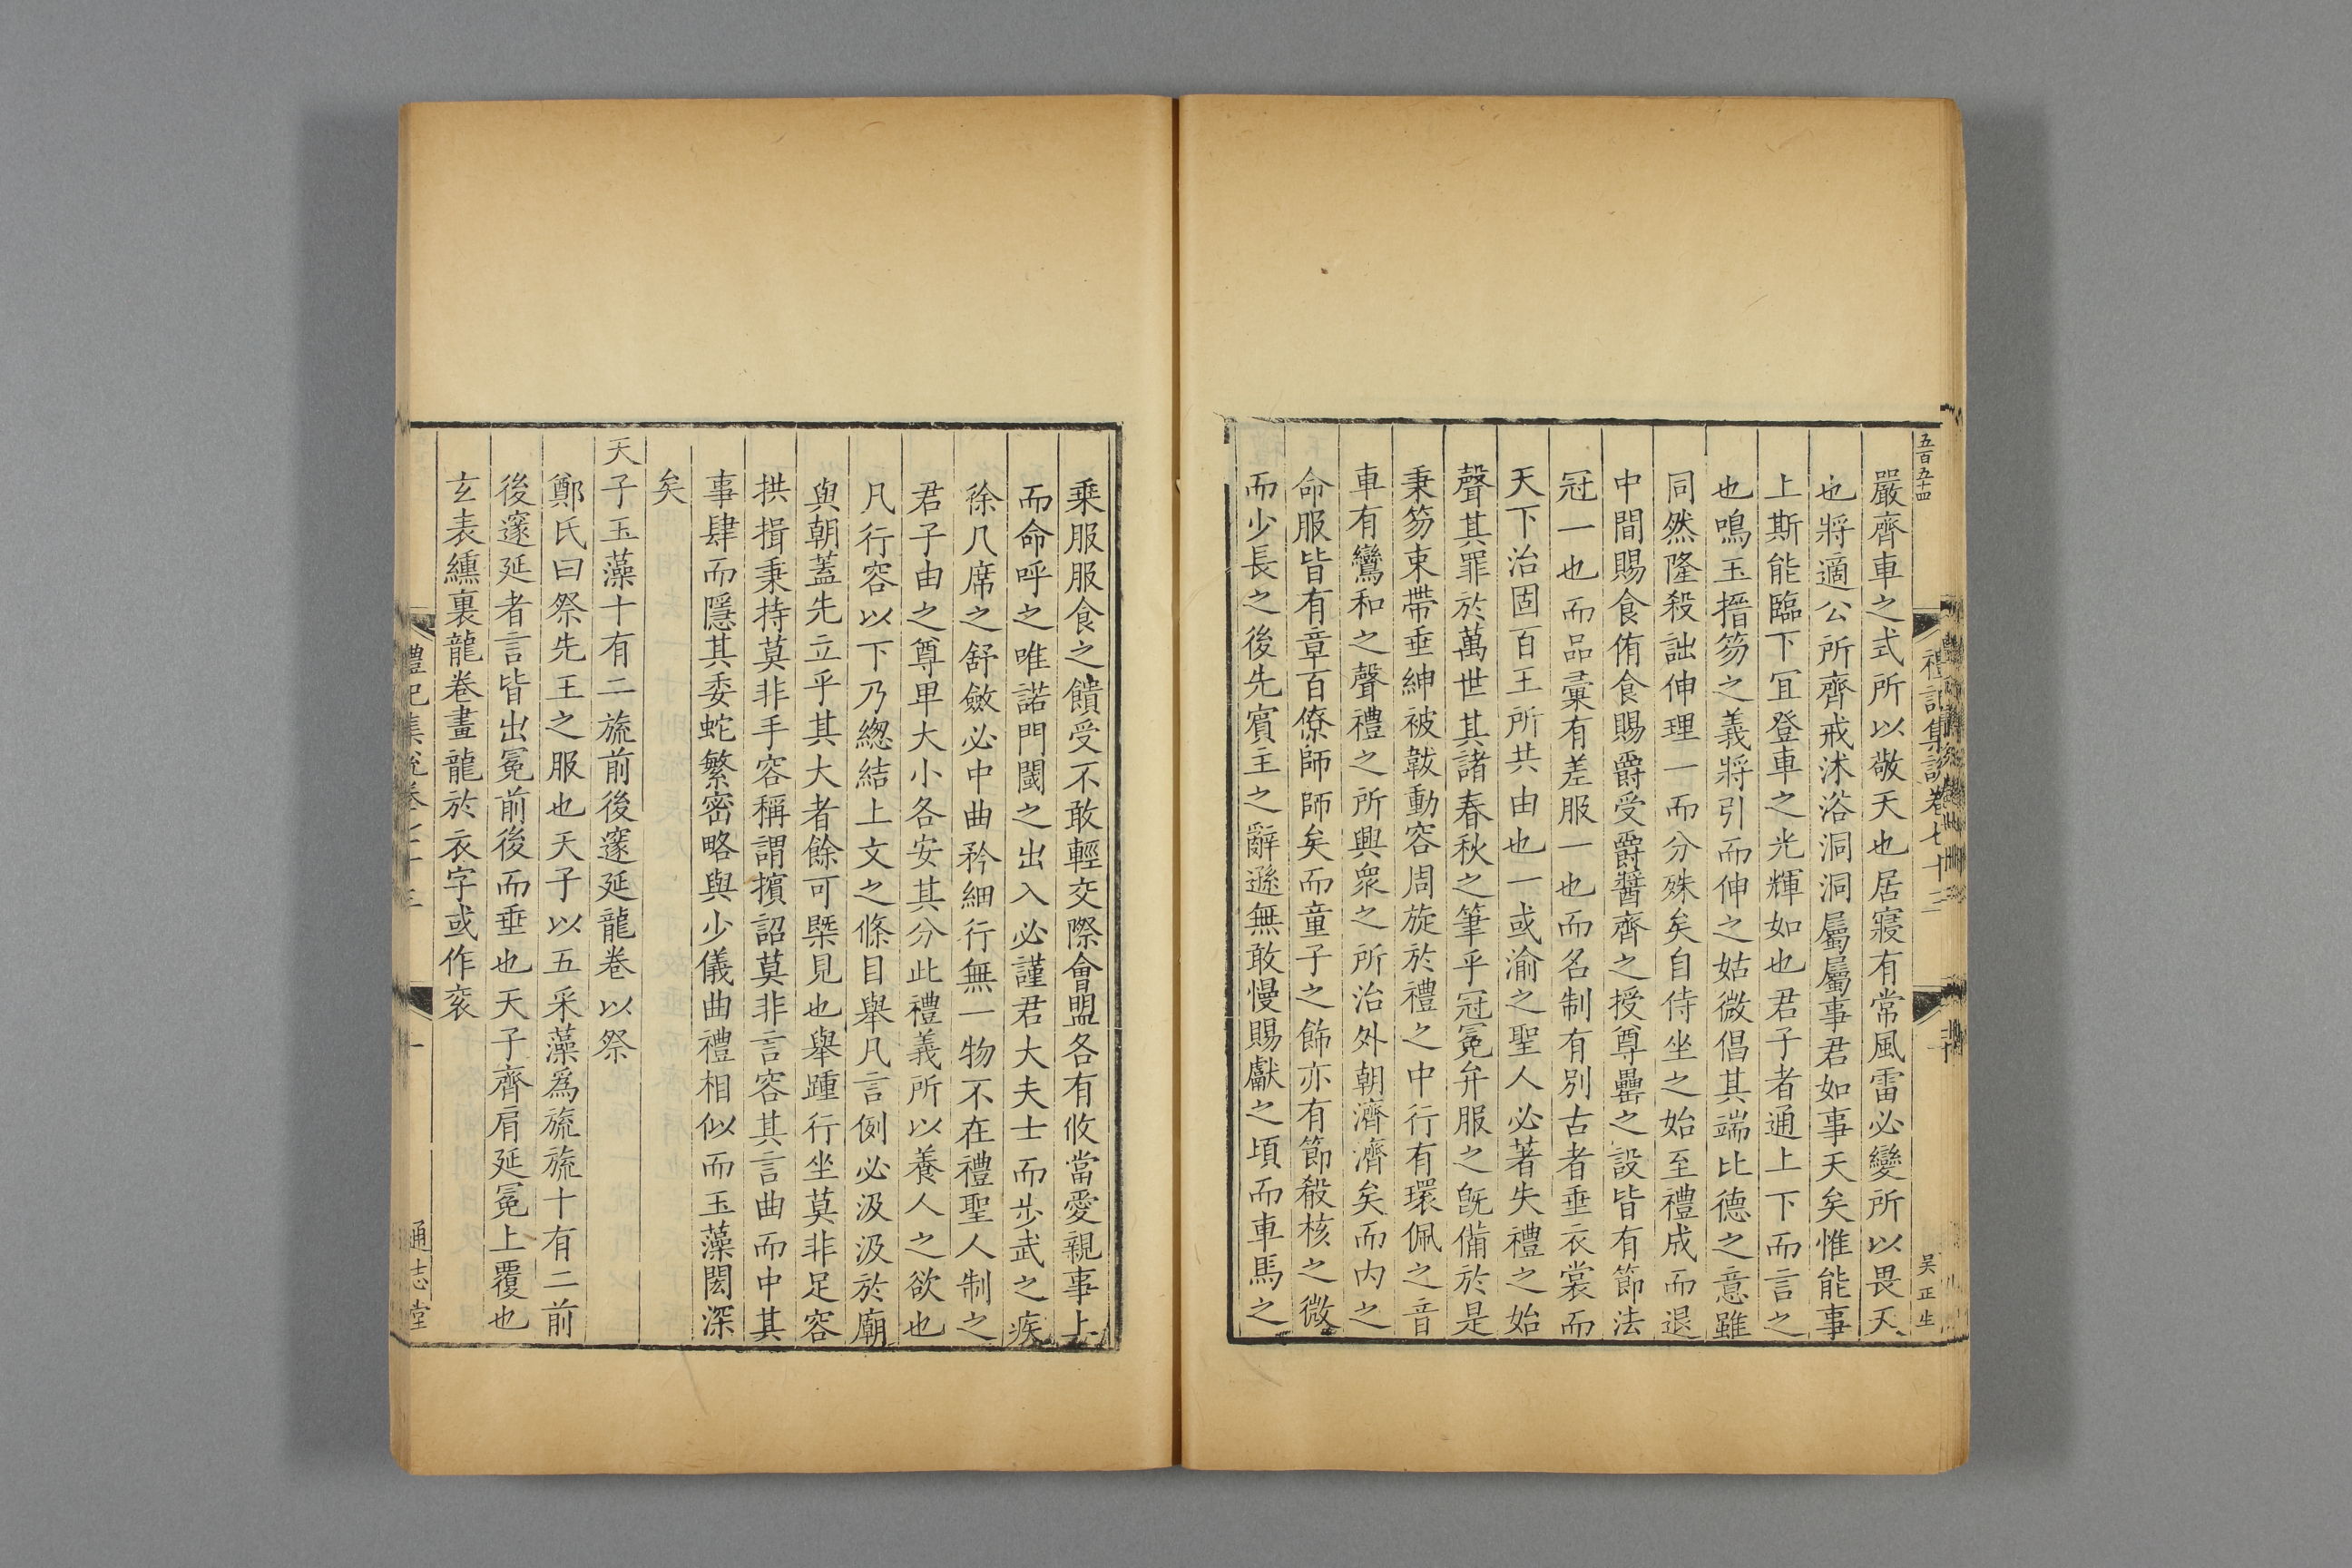 五百五十四
禮記集說卷七十三
吴正生
嚴齊車之式所以敬天也居寢有常風雷必變所以畏天
也將適公所齊戒沐浴洞洞屬屬事君如事天矣惟能事
上斯能臨下冝登車之光輝如也君子者通上下而言之
也鳴玉搢笏之義將引而伸之姑微倡其端比德之意雖
同然隆殺詘伸理一而分殊矣自侍坐之始至禮成而退
中間賜食侑食賜爵受爵醬齊之授尊罍之設皆有節法
冠一也而品彚有差服一也而名制有別古者垂衣裳而
天下治固百王所共由也一或渝之聖人必著失禮之始
聲其罪於萬世其諸春秋之筆乎冠冕弁服之旣備於是
秉笏束帶垂紳被韍動容周旋於禮之中行有環佩之音
車有鸞和之聲禮之所興衆之所治外朝濟濟矣而内之
命服皆有章百僚師師矣而童子之飾亦有節殽核之微
而少長之後先賓主之辭遜無敢慢賜獻之頃而車馬之
乘服服食之饋受不敢輕交際會盟各有攸當愛親事上
而命呼之唯諾門闑之出入必謹君大夫士而步武之疾
徐几席之舒斂必中曲矜細行無一物不在禮聖人制之
君子由之尊甲大小各安其分此禮義所以養人之欲也
凡行容以下乃緫結上文之條目舉凡言例必汲汲於廟
與朝蓋先立乎其大者餘可槩見也舉踵行坐莫非足容
拱揖秉持莫非手容稱謂擯詔莫非言容其言曲而中其
事肆而隱其委蛇繁密略與少儀曲禮相似而玉藻閎深
矣
天子玉藻十有二旒前後邃延龍卷以祭
鄭氏曰祭先王之服也天子以五采藻爲旒旒十有二前
後邃延者言皆出冕前後而垂也天子齊肩延冕上覆也
玄表纁裏龍卷畫龍於衣字或作衮
禮記集說卷七十三
一
通志堂